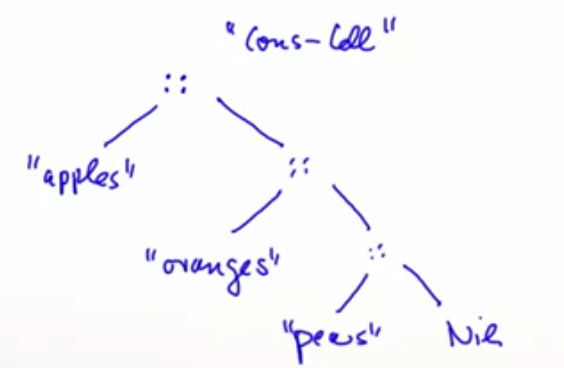 "Cons-Cell"
::
"apples"
::
"oranges"
::
"pears"
Nil